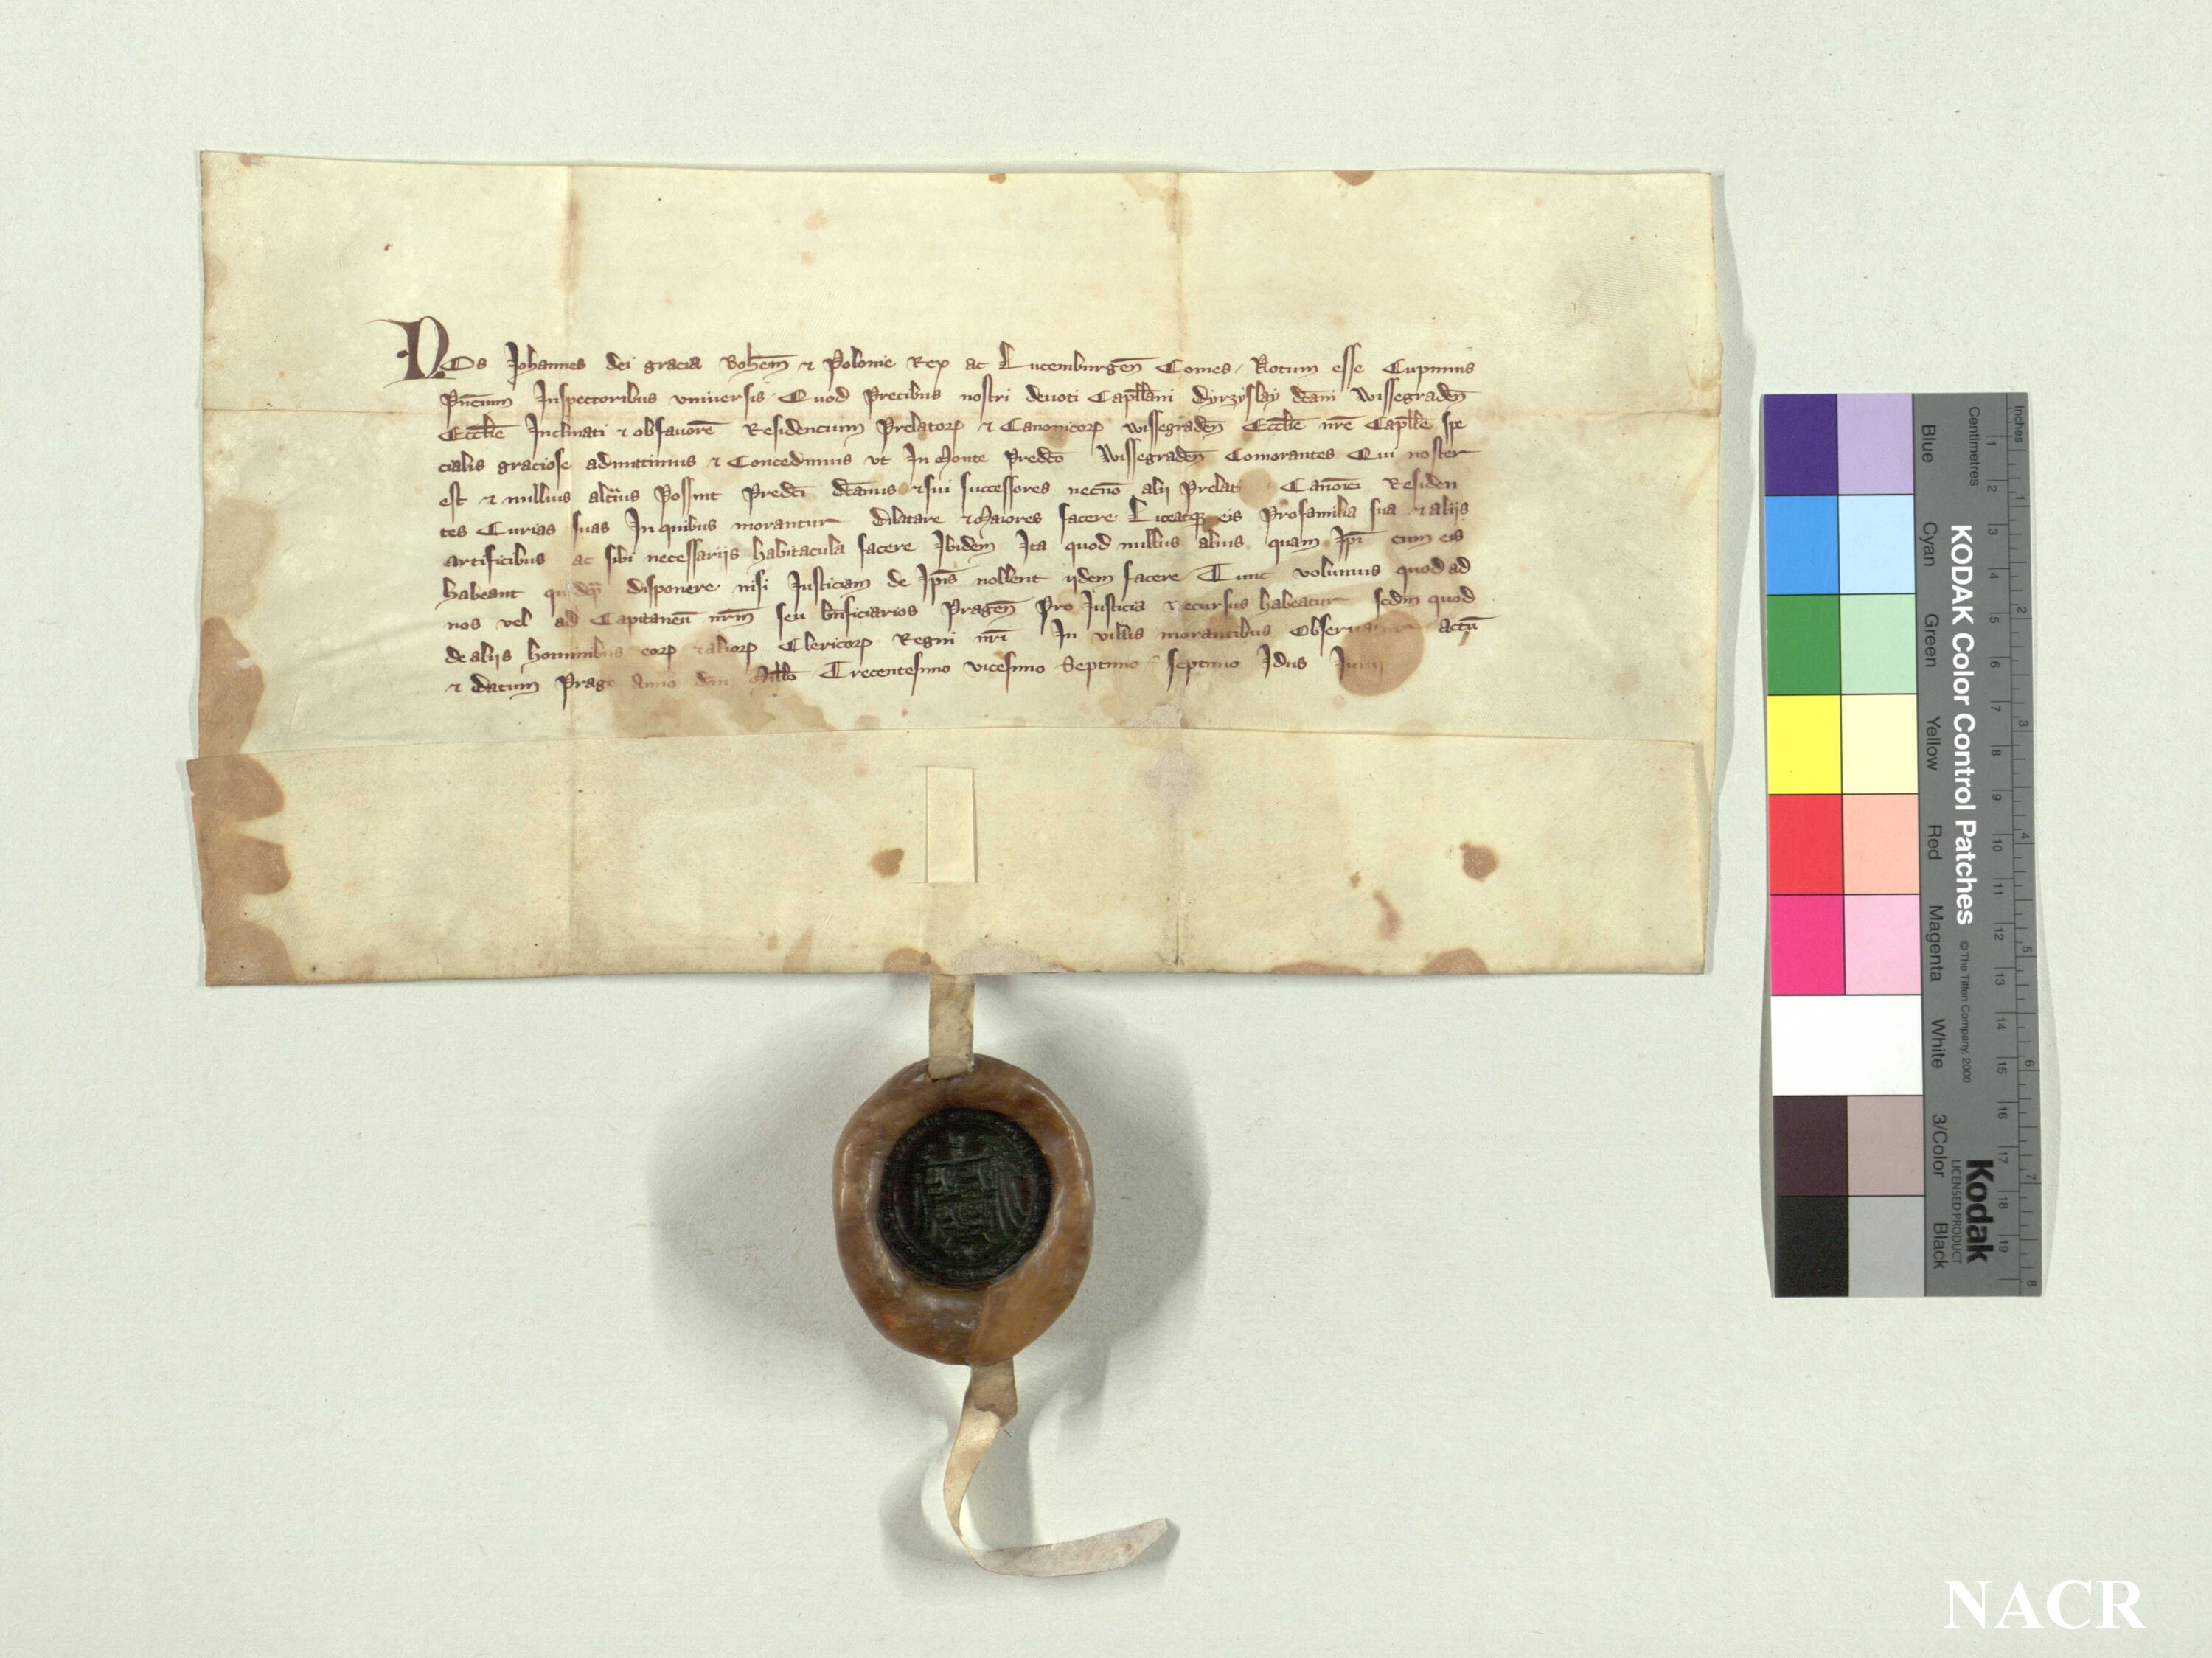 Nos Johannes dei gracia Bohem̅ ⁊ Polonie Rex ac Lucemburgen̅ Comes. Notum esse Cupimus
Pn̅cium Inspectoribus vniuersis. Quod Precibus nostri deuoti Capll̅ani Dyrzyslay dc̅ani Wissegraden̅
Eccl̅ie Inclinati ⁊ obfauore̅ Residencium Prelatoꝝ ⁊ Canonicoꝝ wissegraden̅ Eccl̅ie nr̅e Capll̅e spe
cialis graciose admittimus ⁊ Concedimus vt In Monte Predc̅o Wissegraden̅ Comorantes Qui noster
est ⁊ nullius alt̅ius Possint Predc̅i dc̅anus ⁊ sui successores necno̅ alij Prelat Cano̅ici Residen
tes Curias suas In quibus morantur dilatare ⁊ Maiores facere Liceatqꝫ eis Profamilia sua ⁊ alijs
artificibus ac sibi necessarijs habitacula facere Ibidem Ita quod nullus alius quam Ip̅i cum eis
habeant disponere nisi Justiciam de Ip̅is nollent ijdem facere Tunc volumus quod ad
nos vel ad Capitaneu̅ nr̅m seu bn̅ficiarios Pragen̅ Pro Justicia Recursus habeatur scdm̅ quod
de alijs hominibus eoꝝ ⁊ alioꝝ Clericoꝝ Regni nr̅i In villis morantibus Obseruatur actu̅
⁊ datum Prage Anno dni̅ Mill̅o Trecentesimo vicesimo Septimo septimo Idus Junij
KODAK Color Control Patches © The Tiffen Company, 2000
Kodak
LICENSED PRODUCT
Blue Cyan Green Yellow Red Magenta White 3/Color Black
Centimetres 1 2 3 4 5 6 7 8 9 10 11 12 13 14 15 16 17 18 19
Inches 1 2 3 4 5 6 7 8
NACR